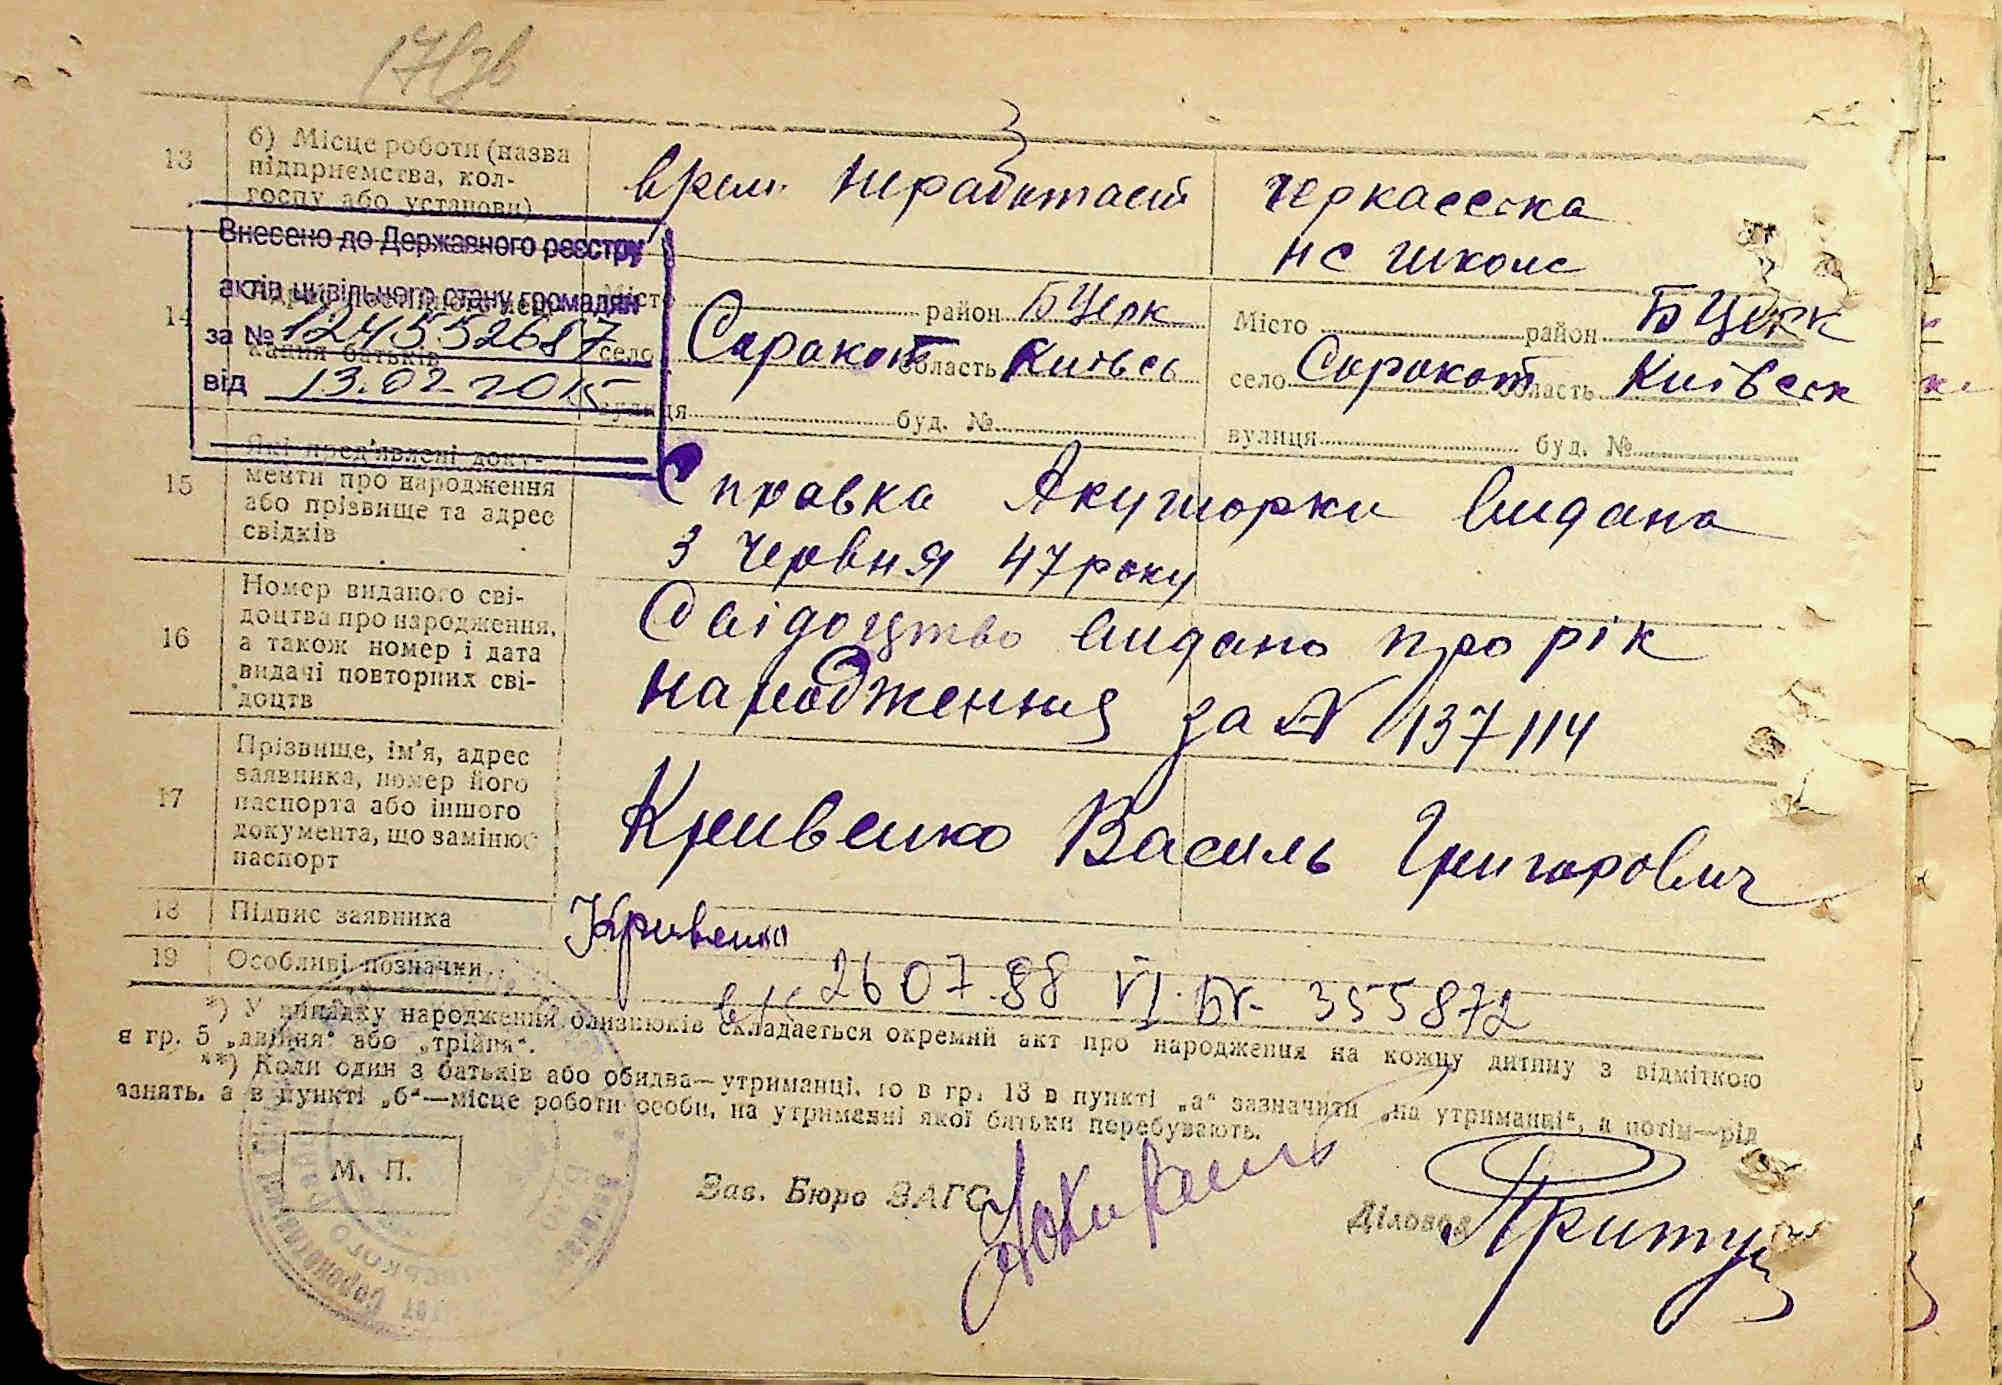 17зв
13
б) Місце роботи (назва
підприємства, кол-
госпу або установи)
врем. неработает
Черкасска
нс школе
Внесено до Державного реєстру
актів цивільного стану громадян
за № 1245552687
від 13.02.2015
14
кання батьків
Місто район БЦерк
село Сорокот область Київсь
вулиця буд. №
Місто район БЦерк
село Сорокот область Київськ
вулиця буд. №
15
Які пред'явлені доку-
менти про народження
або прізвище та адрес
свідків
Справка Акушорки видана
3 червня 47 року
16
Номер виданого сві-
доцтва про народження,
а також номер і дата
видачі повторних сві-
доцтв
Свідоцтво видано про рік
народження за N 137114
17
Прізвище, ім'я, адрес
заявника, номер його
паспорта або іншого
документа, що замінює
паспорт
Кривенко Василь Григорович
18
Підпис заявника
Кривенко
19
Особливі позначки
26 07.88 VI. БК- 355872
*) У випадку народження близнюків складається окремий акт про народження на кожну дитину з відміткою
в гр. 5 „двійня" або „трійня".
**) Коли один з батьків або обидва—утриманці, то в гр. 13 в пункті „а" зазначити „на утриманні", а потім—рід
занять, а в пункті „б"—місце роботи особи, на утриманні якої батьки перебувають.
М. П.
Зав. Бюро ЗАГС
Діловод